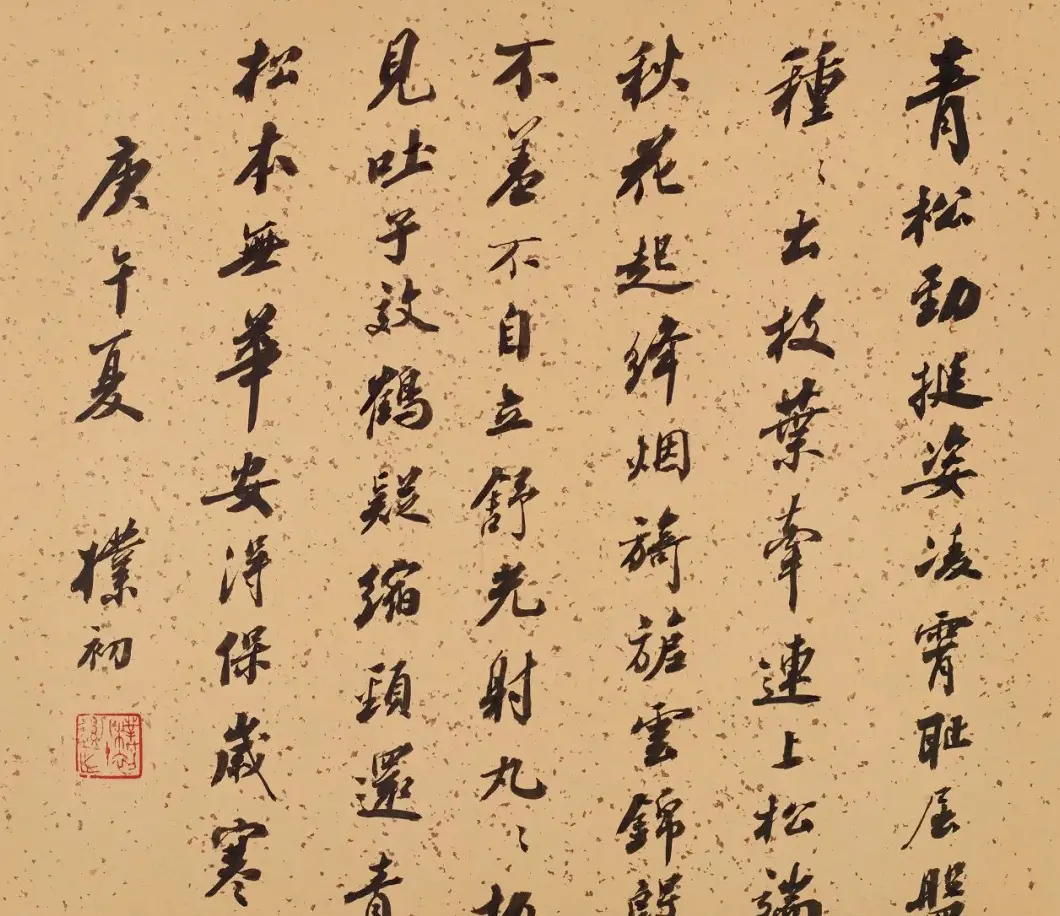 青松勁挺姿凌霄恥屈盤
種〻出枝葉牽連上松端
秋花起絳烟旖旎雲錦殷
不羞不自立舒光射丸〻
見吐子效鶴疑縮頸還青
松本無華安得保歲寒
庚午夏 樸初